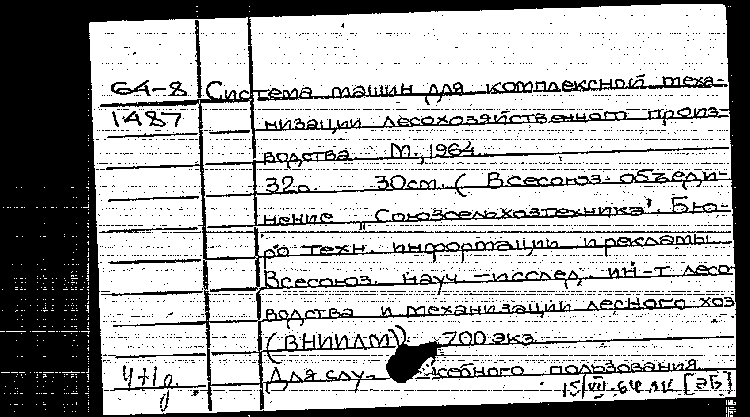 64-8 Система машин для комплексной меха-
1487 низации лесохозяйственного произ-
водства. М., 1964.
32с. 30см. (Всесоюз. объеди-
нение „Союзсельхозтехника". Бю-
ро техн. информации и рекламы.
Всесоюз. науч.-исслед. ин-т лесо-
водства и механизации лесного хоз
(ВНИИЛМ)). 700 экз.
Для слу- жебного пользования
4+1д. 15/VII-64 [ЭБ]